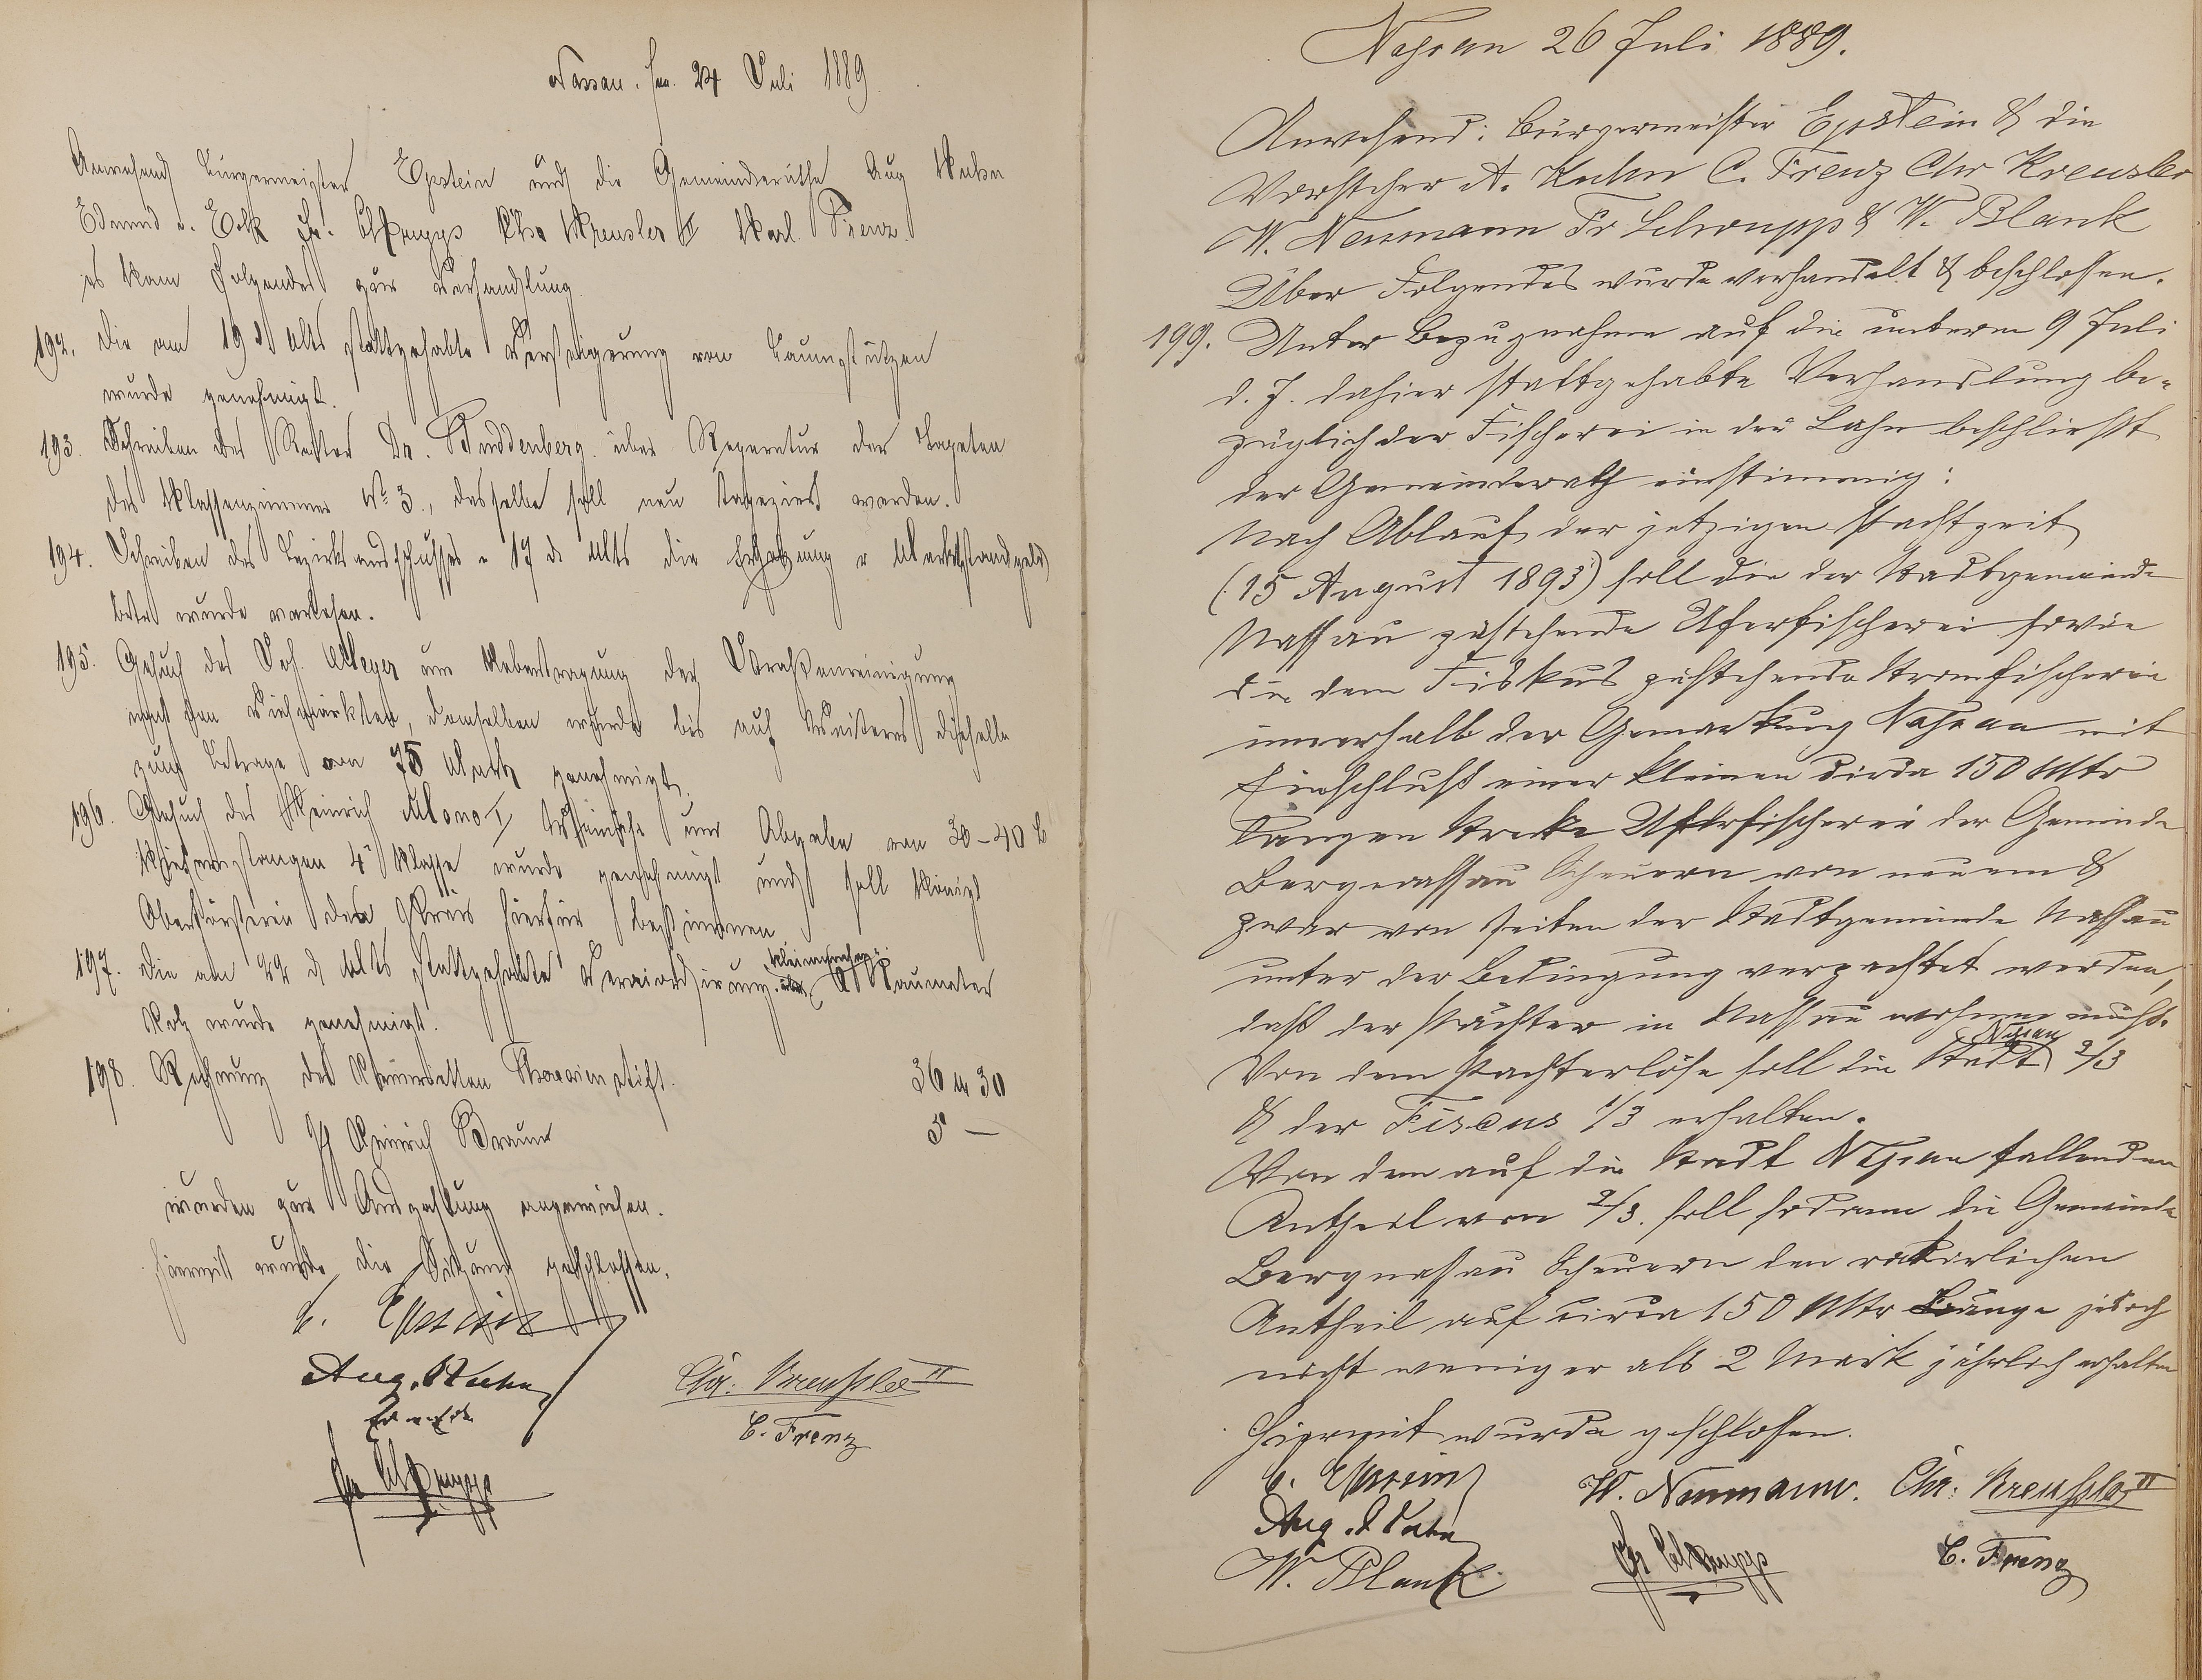 Nassau, den 24 Juli 1889
Anwesend Bürgermeister Epstein und die Gemeinderäthe Aug Kuhn
Edmund v. Eck Fr. Schrupp Chr Kreusler II Karl Frenz.
es kam Folgendes zur Verhandlung
192. Die am 19 d Mts stattgehabte Versteigerung von Baumstützen
wurde genehmigt.
193. Schreiben des Rektor Dr. Buddenberg über Reparatur der Tapeten
des Klassenzimmer No 3., dasselbe soll neu tapeziert werden.
194. Schreiben des Bezirksausschusses v 17 ds Mts die Erhebung v Marktstandgeld
betr wurde verlesen.
195. Gesuch des Joh. Meyer um Uebertragung der Straßenreinigung
nach den Viehmärkten, demselben wurde bis auf Weiteres dieselbe
zum Betrage von 75 Mark genehmigt.
196. Gesuch des Heinrich Mono I um Abgabe von 30-40
Stangen 4r Klasse wurde genehmigt und soll Königl
Oberförsterei den Preis hierfür bestimmen
197. Die am 22 d Mts stattgehabte Verakkordirung Kleinmachen Raumeter
Holz wurde genehmigt.
198. Rechnung des Henrietten Theresenstift. 36 M 30
" Heinrich Braun 5 —
wurden zur Auszahlung angewiesen.
hiermit wurde die Sitzung geschlossen.
C. Epstein
Aug. Kuhn Chr: Kreussler II
Ed v. Eck C. Frenz
Fr Schrupp
Nassau 26 Juli 1889.
Anwesend: Bürgermeister Epstein & die
Vorsteher A. Kuhn C. Frenz Chr Kreusler
W. Neumann Fr Schrupp & W. Blank
Über Folgendes wurde verhandelt & beschlossen.
199. Unter Bezugnahme auf die unterm 9 Juli
d. J. dahier stattgehabte Verhandlung be-
züglich der Fischerei in der Lahn beschliesst
der Gemeinderath einstimmig:
Nach Ablauf der jetzigen Pachtzeit
(15 August 1893) soll die der Stadtgemeinde
Nassau zustehende Uferfischerei sowie
die dem Fiskus zustehende Stromfischerei
innerhalb der Gemarkung Nassau mit
Einschluß einer kleinen circa 150 Mtr
langen Strecke Uferfischerei der Gemeinde
Bergnassau Scheuern von neuem &
zwar von Seiten der Stadtgemeinde Nassau
unter der Bedingung verpachtet werden,
daß der Pächter in Nassau wohnen muß.
Von dem Pachterlöse soll die Stadt Nassau 2/3
& der Fiscus 1/3 erhalten.
Von dem auf die Stadt Nassau fallenden
Antheil von 2/3. soll sodann die Gemeinde
Bergnassau Scheuern den ratirlichen
Antheil auf circa 150 Mtr Länge jedoch
nicht weniger als 2 Mark jährlich erhalten
Hiermit wurde geschlossen.
C. Epstein W. Neumann. Chr: Kreussler II
Aug. Kuhn
W. Blank Fr Schrupp C. Frenz